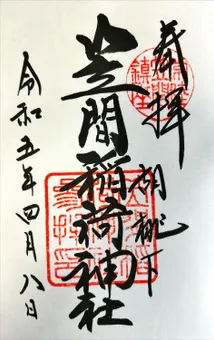 奉拝
胡桃下
笠間稲荷神社
令和五年四月八日